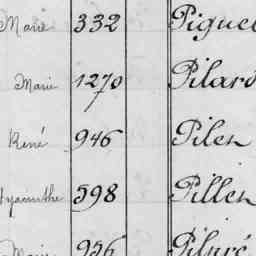 Marie 332 Pigue
Marie 1270 Pilard
René 946 Pilen
Hyacinthe 598 Pillen
Marie 956 Piluré